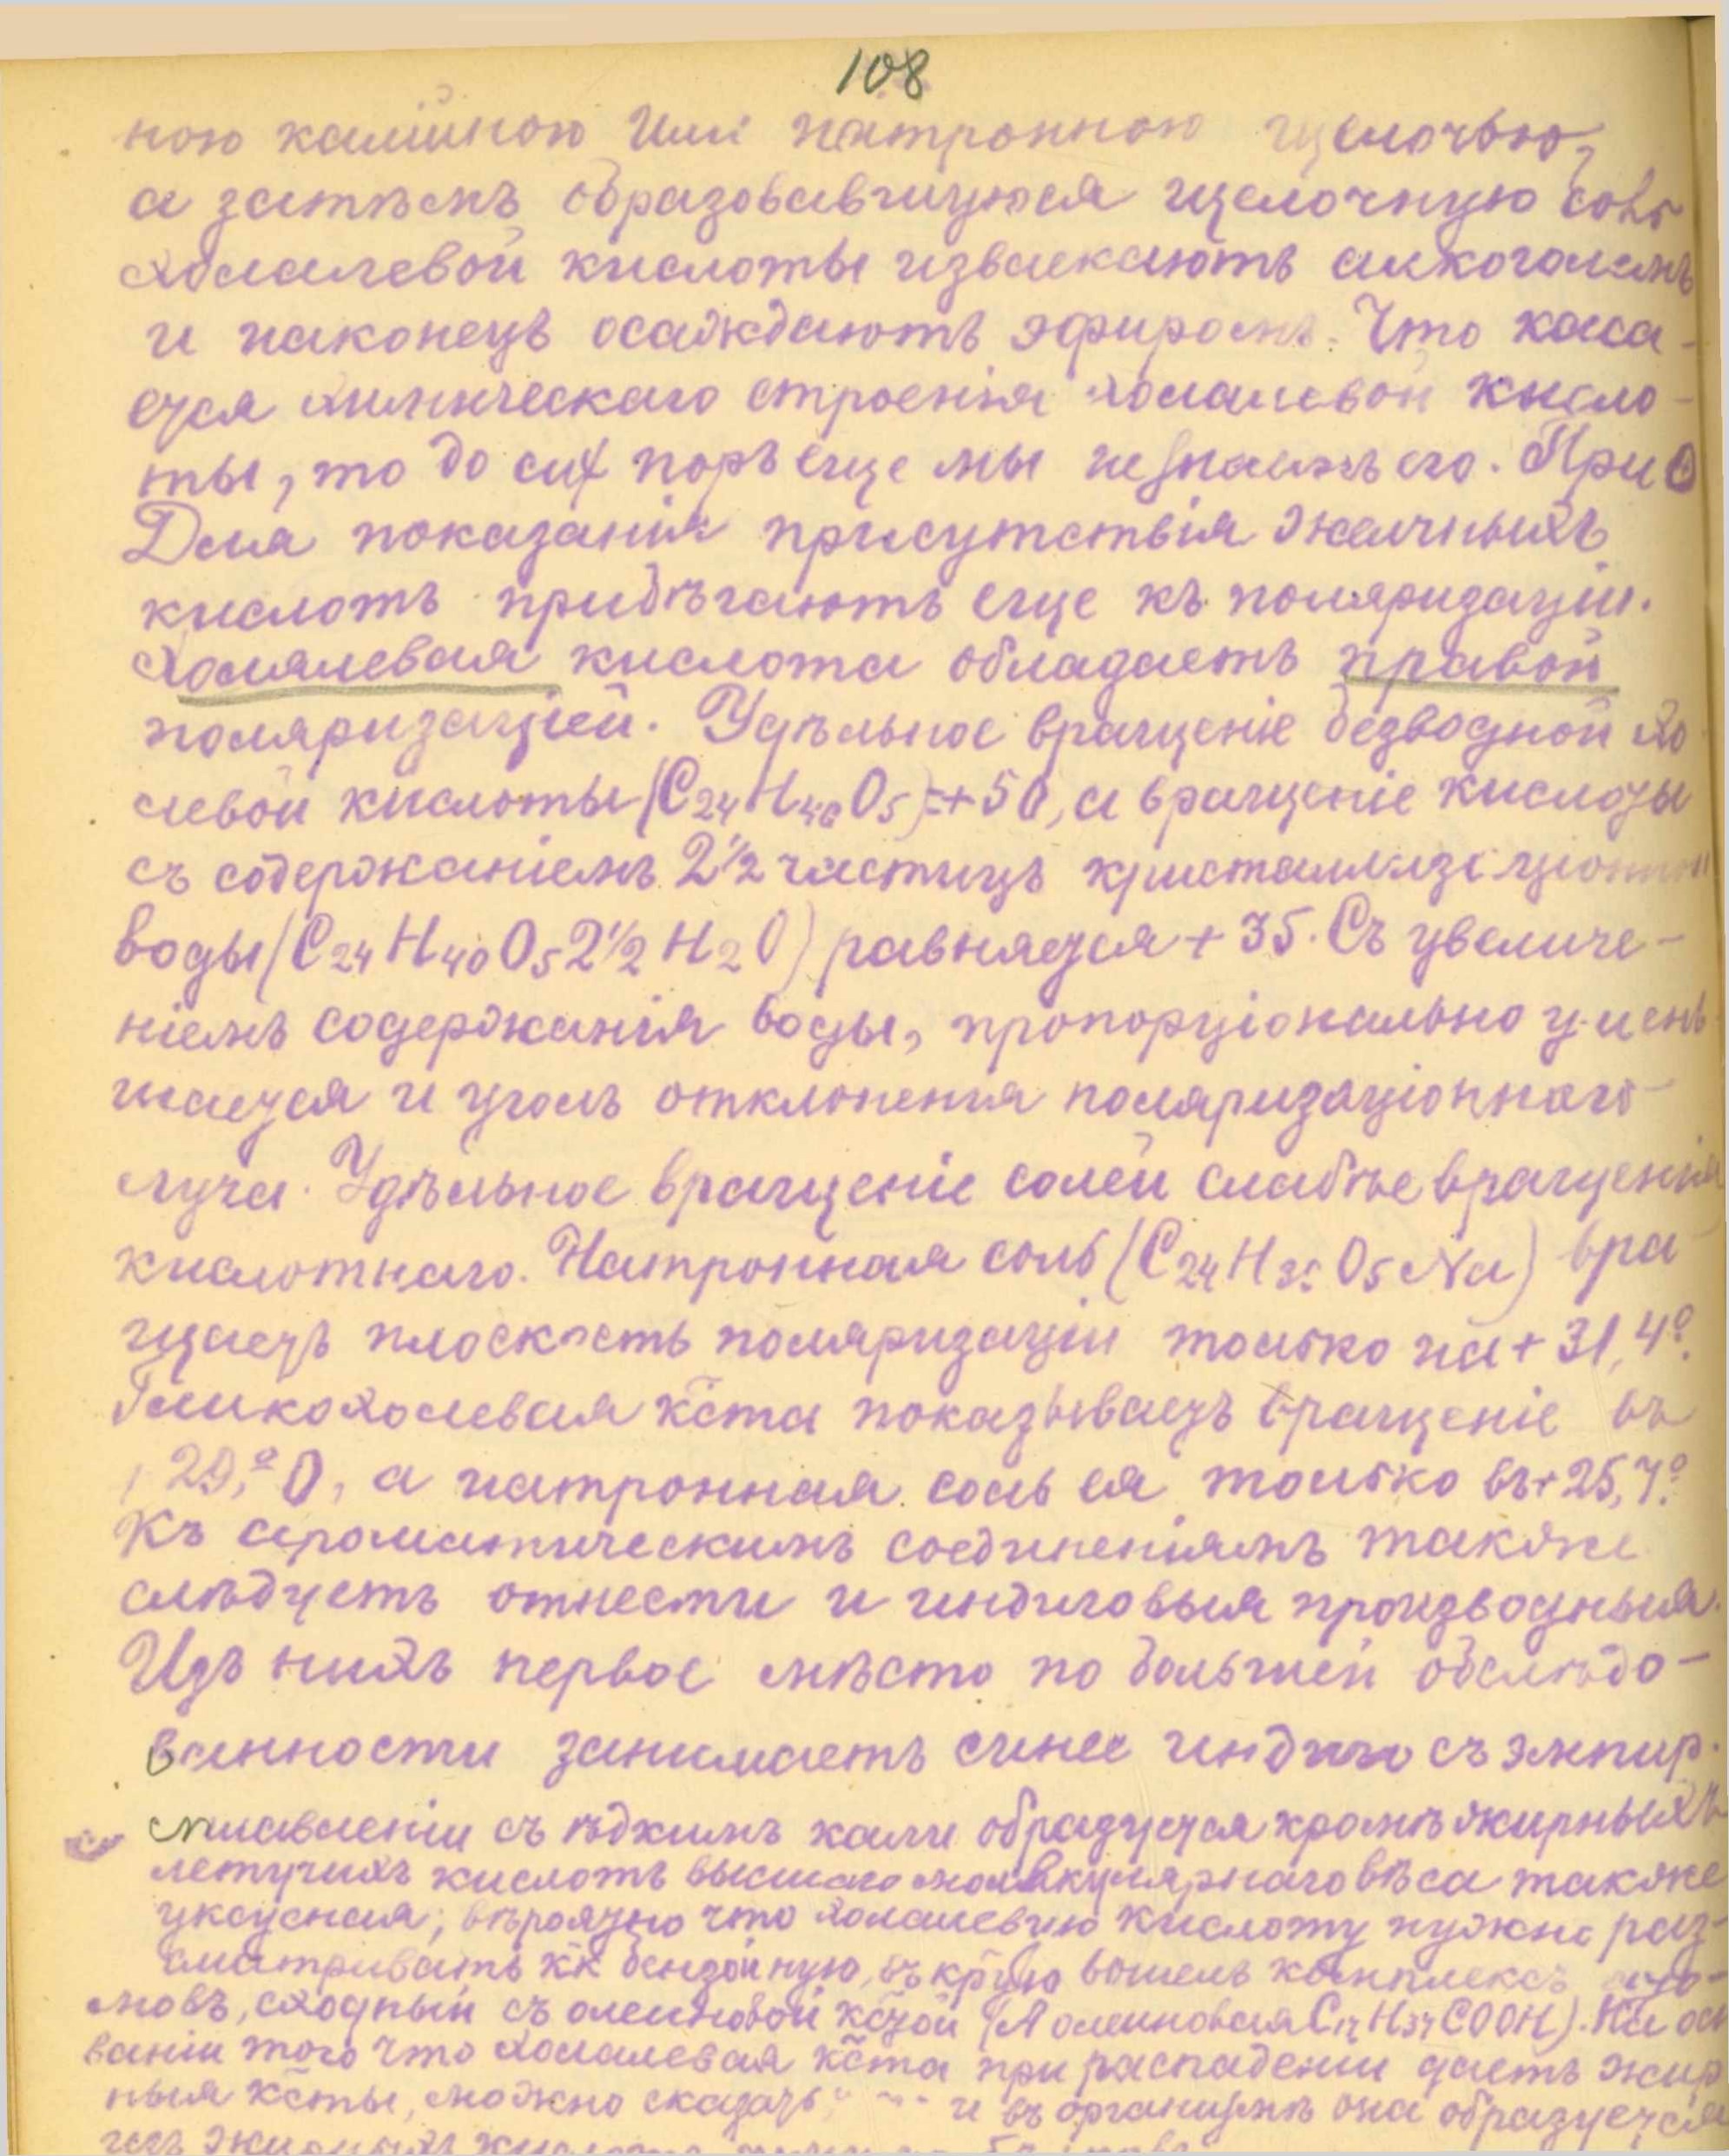 108
ною калійною или натронною щелочью,
а затѣмъ образовавшуюся щелочную соль
холалевой кислоты извлекаютъ алкоголемъ
и наконецъ осаждаютъ эфиромъ. Что каса-
ется химическаго строенія холалевой кисло-
ты, то до сих поръ еще мы не знаемъ его. При
Для показанія присутствія желчныхъ
кислотъ прибѣгаютъ еще къ поляризаціи.
Холялевая кислота обладаетъ правой
поляризаціей. Удѣльное вращеніе безводной хо
левой кислоты (C24H40O5)=+50, а вращеніе кислоты
съ содержаніемъ 2½ частицъ кристаллизаціонной
воды (C24H40O5 2½ H2O) равняется + 35. Съ увеличе-
ніемъ содержанія воды, пропорціонально умень
шается и уголъ отклоненія поляризаціоннаго
луча. Удѣльное вращеніе солей слабѣе вращенія
кислотнаго. Натронная соль (C24H39O5Na) вра-
щаетъ плоскость поляризаціи только на + 31,4°.
Гликохолевая кста показываетъ вращеніе въ
29,°0, а натронная соль ея только въ + 25,7°.
Къ ароматическимъ соединеніямъ также
слѣдуетъ отнести и индиговыя производныя.
Изъ нихъ первое мѣсто по большей обслѣдо-
ванности занимаетъ синее индиго съ эмпир.
сплавленіи съ ѣдкимъ кали образуется кромѣ жирныхъ
летучихъ кислотъ высшаго молекулярнаго вѣса также
уксусная; вѣроятно что холалевую кислоту нужно раз-
сматривать кк бензойную, въ крую вошелъ комплексъ ато-
мовъ, сходный съ олеиновой кстой (А олеиновая C17H37COOH). На осн
ваніи того что холалевая кста при распаденіи даетъ жир
ныя ксты, можно сказать, и въ организмѣ она образуется